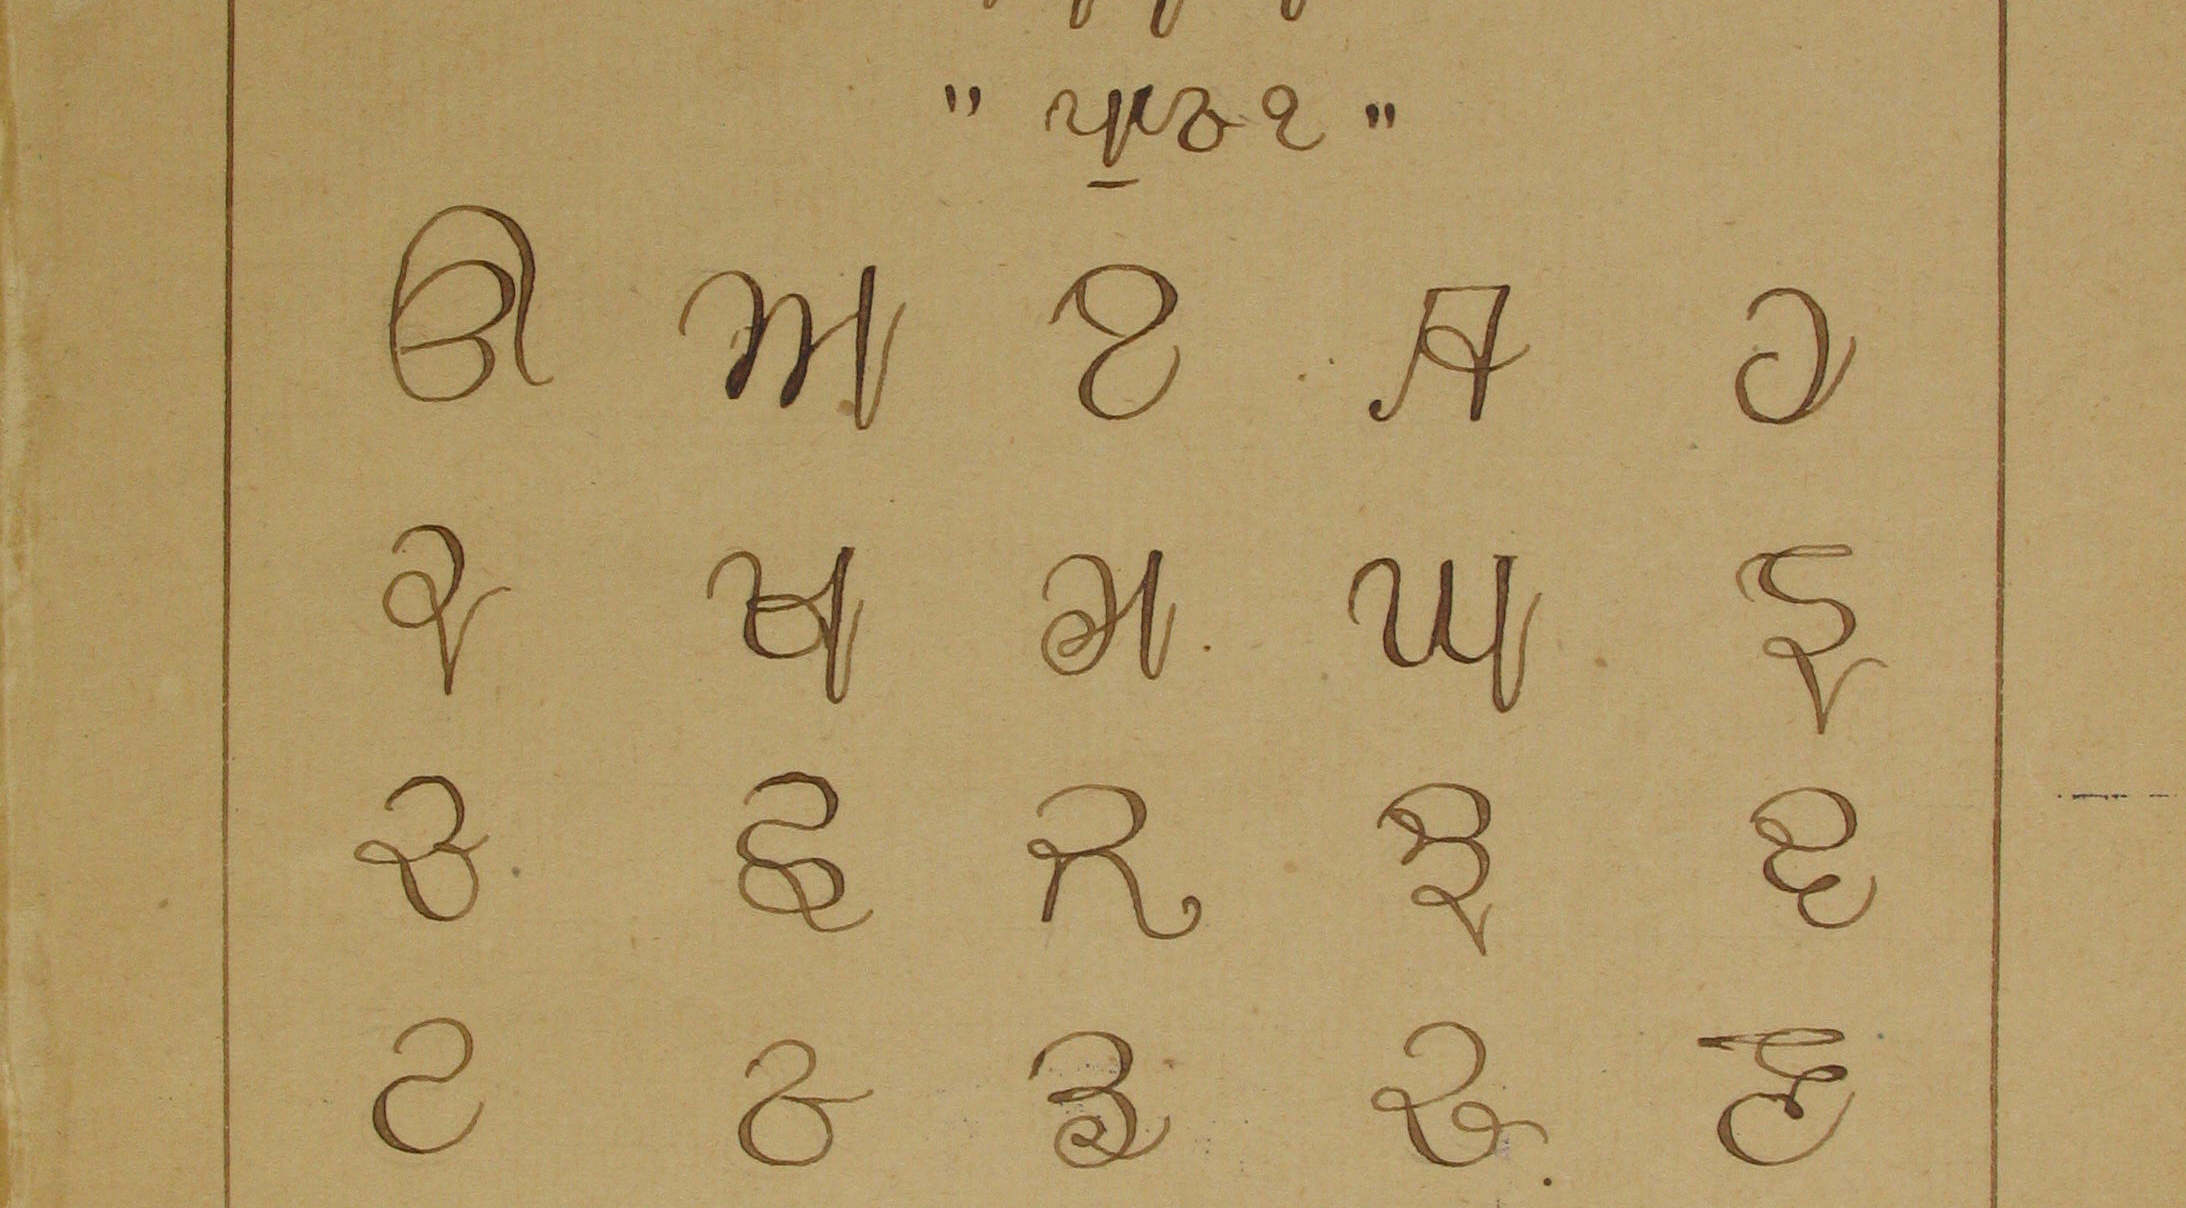 ੳ ਅ ੲ ਸ ਹ
ਕ ਖ ਗ ਘ ਙ
ਚ ਛ ਜ ਝ ਞ
ਟ ਠ ਡ ਢ ਣ